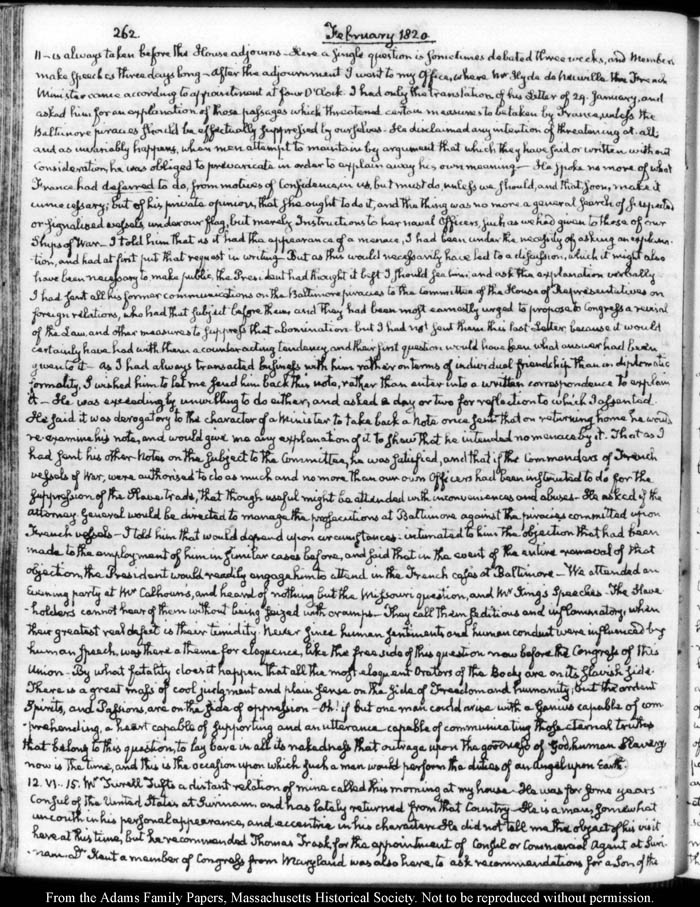 262.
February 1820.
11— is always taken before the House adjourns— Here a single question is sometimes debated three weeks, and Members
make Speeches three days long— After the adjournment I went to my Office, where Mr Hyde de Neuville the French
Minister came according to appointment at four O'Clock. I had only the translation of his Letter of 29. January, and
asked him for an explanation of those passages which threatened certain measures to be taken by France, unless the
Baltimore piracies should be effectually suppressed by ourselves. He disclaimed any intention of threatening at all;
and as invariably happens, when men attempt to maintain by argument that which they have said or written without
consideration, he was obliged to prevaricate in order to explain away his own meaning— He spoke no more of what
France had deferred to do, from motives of confidence, in us, but must do, unless we should, and that soon, make it
unnecessary; but of his private opinion, that she ought to do it, and the thing was no more a general search of suspected
or signalised vessels under our flag, but merely Instructions to her naval Officers, such as we had given to those of our
Ships of War— I told him that as it had the appearance of a menace, I had been under the necessity of asking an explana-
-tion, and had at first put that request in writing— But as this would necessarily have led to a discussion, which it might also
have been necessary to make public, the President had thought it best I should see him, and ask the explanation verbally
I had sent all his former communications on the Baltimore piracies to the Committee of the House of Representatives on
foreign relations, who had that subject before them; and they had been most earnestly urged to propose to Congress a revival
of the Law, and other measures to suppress that abomination. but I had not sent them this last Letter because it would
certainly have had with them a counteracting tendency, and their first question would have been what answer had been
given to it— As I had always transacted business with him rather on terms of individual friendship than on diplomatic
formality, I wished him to let me send him back this note, rather than enter into a written correspondence to explain
it— He was exceedingly unwilling to do either, and asked a day or two for reflection to which I assented
He said it was derogatory to the character of a Minister to take back a Note once sent that on returning home he would
re-examine his note, and would give me any explanation of it to shew that he intended no menace by it. That as I
had sent his other Notes on the subject to the Committee, he was satisfied, and that if the Commanders of French
vessels of War, were authorised to do as much and no more than our own Officers had been instructed to do for the
suppression of the Slave trade, that though useful might be attended with inconveniences and abuses. He asked if the
Attorney General would be directed to manage the prosecutions at Baltimore against the piracies committed upon
French vessels— I told him that would depend upon circumstances: intimated to him the objection that had been
made to the employment of him in similar cases before, and said that in the event of the entire removal of that
objection, the President would readily engage him to attend in the French cases at Baltimore— We attended an
Evening party at Mr Calhoun's, and heard of nothing but the Missouri question, and Mr King's Speeches. The Slave
-holders cannot hear of them without being seized with cramps. They call them seditious and inflammatory, when
their greatest real defect is their timidity. Never since human sentiments and human conduct were influenced by
human speech, was there a theme for eloquence, like the free side of this question now before the Congress of this
Union. By what fatality does it happen that all the most eloquent Orators of the Body are on its slavish side.
There is a great mass of cool judgment and plain sense on the side of Freedom and humanity, but the ardent
Spirits, and Passions, are on the side of oppression— Oh! if but one man could arise with a Genius capable of com
-prehending, a heart capable of supporting and an utterance capable of communicating those eternal truths
that belong to this question, to lay bare in all its nakedness that outrage upon the goodness of God, human Slavery
now is the time, and this is the occasion upon which such a man would perform the duties of an Angel upon Earth.
12. VI. 15. Mr Turrell Tufts a distant relation of mine called this morning at my house. He was for some years
Consul of the United States at Surinam and has lately returned from that Country— He is a man, somewhat
uncouth in his personal appearance, and eccentric in his character. He did not tell me the object of his visit
here at this time, but he recommended Thomas Trask for the appointment of Consul or Commercial Agent at Suri-
-nam. Dr Kent a member of Congress from Maryland was also here, to ask recommendations for a Son of the
From the Adams Family Papers, Massachusetts Historical Society. Not to be reproduced without permission.